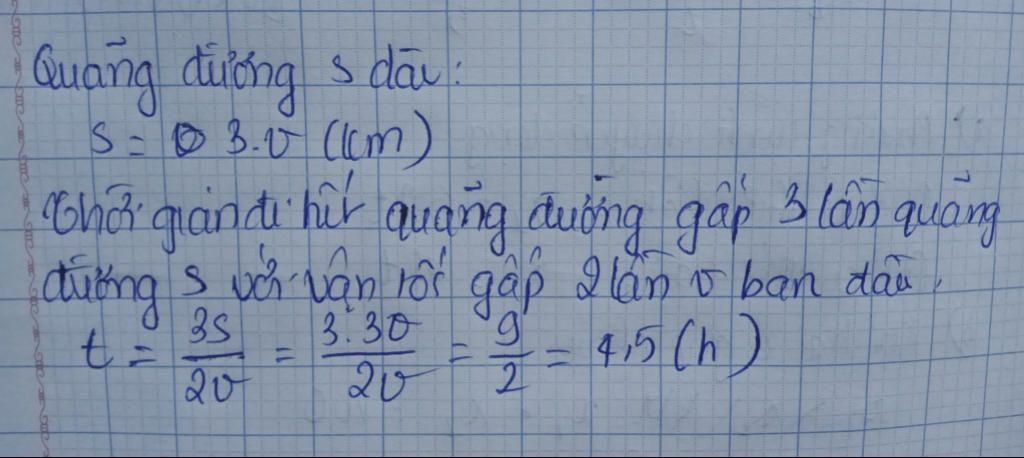 Quãng đường s dài:
s = 3.v (km)
Thời gian đi hết quãng đường gấp 3 lần quãng
đường s với vận tốc gấp 2 lần v ban đầu.
t = 3s/2v = 3.3v/2v = 9/2 = 4,5 (h)